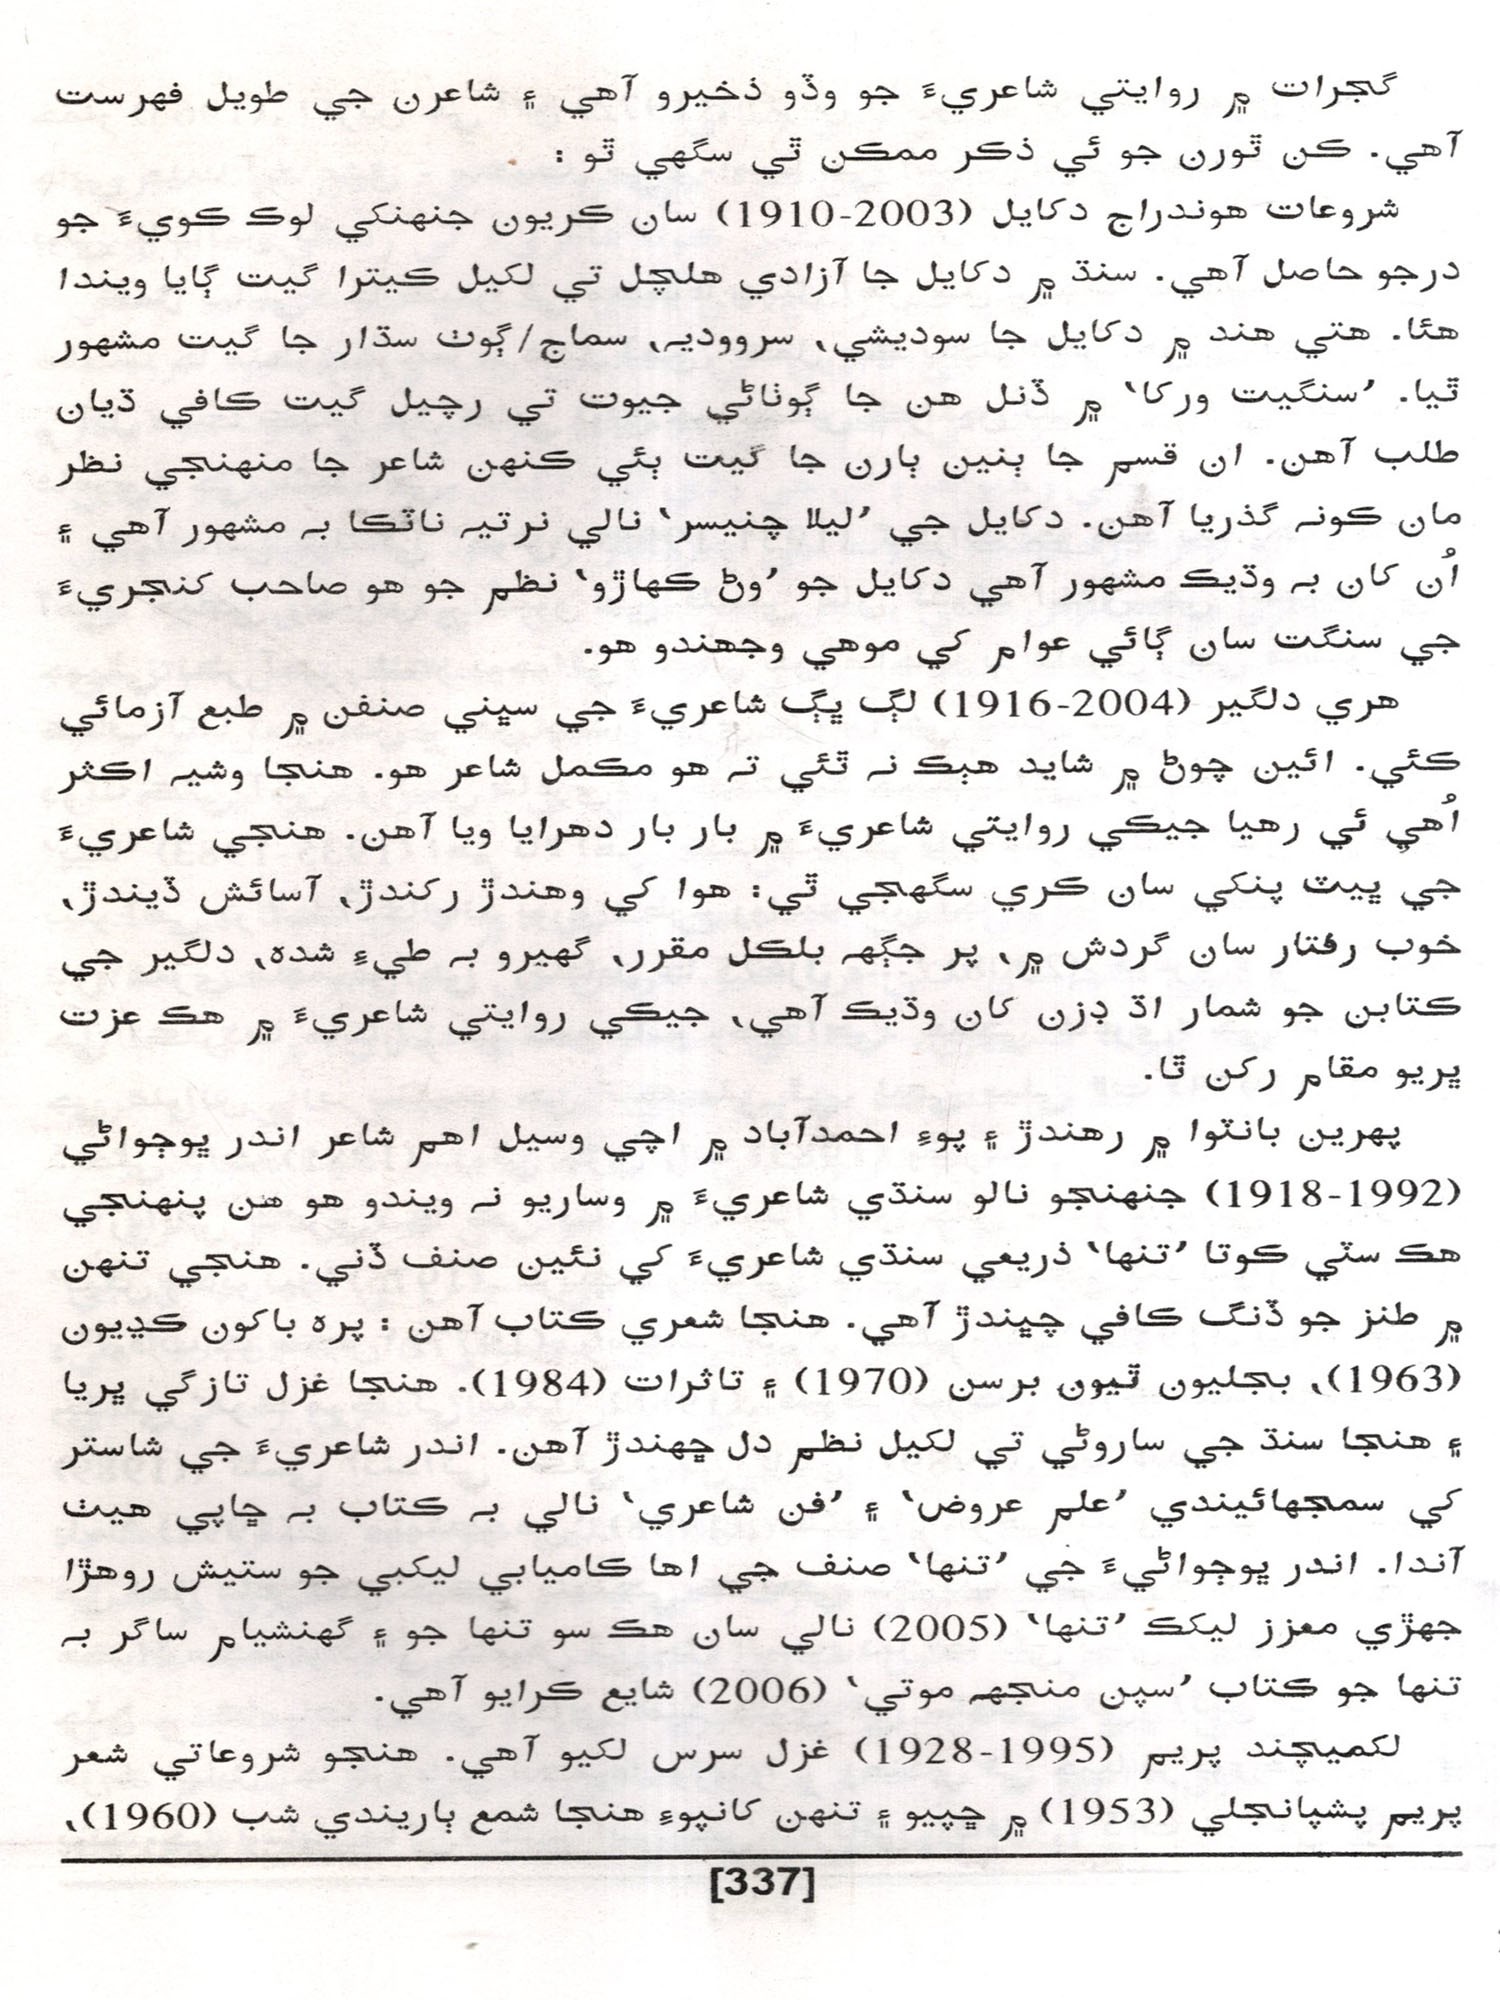 گجرات ۾ روايتي شاعريءَ جو وڏو ذخيرو آهي ۽ شاعرن جي طويل فهرست
آهي. ڪن ٿورن جو ئي ذڪر ممڪن ٿي سگهي ٿو :
شروعات هوندراج دکايل (1910-2003) سان ڪريون جنهنکي لوڪ ڪويءَ جو
درجو حاصل آهي. سنڌ ۾ دکايل جا آزادي هلچل تي لکيل ڪيترا گيت ڳايا ويندا
هئا. هتي هند ۾ دکايل جا سوديشي، سرووديہ، سماج/ڳوٺ سڌار جا گيت مشهور
ٿيا. ’سنگيت ورکا‘ ۾ ڏنل هن جا ڳوٺاڻي جيوت تي رچيل گيت ڪافي ڌيان
طلب آهن. ان قسم جا ٻنين ٻارن جا گيت ٻئي ڪنهن شاعر جا منهنجي نظر
مان ڪونہ گذريا آهن. دکايل جي ’ليلا چنيسر‘ نالي نرتيہ ناٽڪا بہ مشهور آهي ۽
اُن کان بہ وڌيڪ مشهور آهي دکايل جو ’وڻ ڪهاڙو‘ نظم جو هو صاحب کنجريءَ
جي سنگت سان ڳائي عوام کي موهي وجهندو هو.
هري دلگير (1916-2004) لڳ ڀڳ شاعريءَ جي سڀني صنفن ۾ طبع آزمائي
ڪئي. ائين چوڻ ۾ شايد هٻڪ نہ ٿئي تہ هو مڪمل شاعر هو. هنجا وشيہ اڪثر
اُهي ئي رهيا جيڪي روايتي شاعريءَ ۾ بار بار دهرايا ويا آهن. هنجي شاعريءَ
جي ڀيٽ پنکي سان ڪري سگهجي ٿي: هوا کي وهندڙ رکندڙ، آسائش ڏيندڙ،
خوب رفتار سان گردش ۾، پر جڳهہ بلڪل مقرر، گهيرو بہ طيءِ شدہ، دلگير جي
ڪتابن جو شمار اڌ ڊزن کان وڌيڪ آهي، جيڪي روايتي شاعريءَ ۾ هڪ عزت
ڀريو مقام رکن ٿا.
پهرين بانٽوا ۾ رهندڙ ۽ پوءِ احمدآباد ۾ اچي وسيل اهم شاعر اندر ڀوڄواڻي
(1918-1992) جنهنجو نالو سنڌي شاعريءَ ۾ وساريو نہ ويندو هو هن پنهنجي
هڪ سٽي ڪوتا ’تنها‘ ذريعي سنڌي شاعريءَ کي نئين صنف ڏني. هنجي تنهن
۾ طنز جو ڏنگ ڪافي چڀندڙ آهي. هنجا شعري ڪتاب آهن : پرہ باکون ڪڍيون
(1963)، بجليون ٿيون برسن (1970) ۽ تاثرات (1984). هنجا غزل تازگي ڀريا
۽ هنجا سنڌ جي ساروڻي تي لکيل نظم دل ڇهندڙ آهن. اندر شاعريءَ جي شاستر
کي سمجهائيندي ’علم عروض‘ ۽ ’فن شاعري‘ نالي بہ ڪتاب بہ ڇاپي هيٺ
آندا. اندر ڀوڄواڻيءَ جي ’تنها‘ صنف جي اها ڪاميابي ليکبي جو ستيش روهڙا
جهڙي معزز ليکڪ ’تنها‘ (2005) نالي سان هڪ سو تنها جو ۽ گهنشيام ساگر بہ
تنها جو ڪتاب ’سپن منجهہ موتي‘ (2006) شايع ڪرايو آهي.
لکميچند پريم (1928-1995) غزل سرس لکيو آهي. هنجو شروعاتي شعر
پريم پشپانجلي (1953) ۾ ڇپيو ۽ تنهن کانپوءِ هنجا شمع ٻاريندي شب (1960)،
[337]